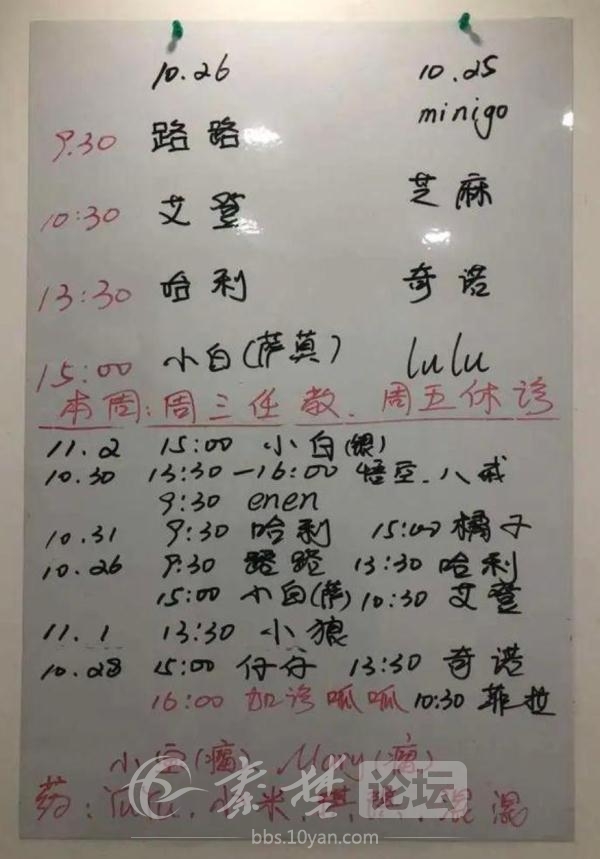 10.26 10.25
minigo
9.30 路路
10:30 艾登 芝麻
13:30 哈利 奇诺
15:00 小白(萨莫) lulu
本周:周三任教、周五休诊
11.2 15:00 小白(银)
10.30 13:30—16:00 悟空、八戒
9:30 enen
10.31 9:30 哈利 15:00 橘子
10.26 9:30 路路 13:30 哈利
15:00 小白(萨) 10:30 艾登
11.1 13:30 小狼
10.28 15:00 仔仔 13:30 奇诺
16:00 加诊呱呱 10:30 菲拉
小豆(瘤) Mary(瘤)
药: 小米 混混
秦楚论坛
bbs.10yan.com